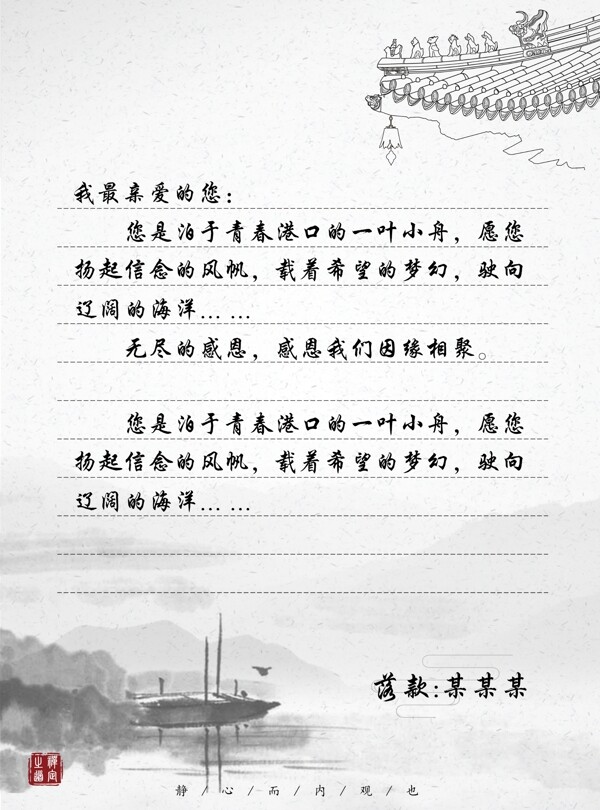 我最亲爱的您：
您是泊于青春港口的一叶小舟，愿您
扬起信念的风帆，载着希望的梦幻，驶向
辽阔的海洋... ...
无尽的感恩，感恩我们因缘相聚。
您是泊于青春港口的一叶小舟，愿您
扬起信念的风帆，载着希望的梦幻，驶向
辽阔的海洋... ...
落款:某某某
禅定
之道
静／心／而／内／观／也